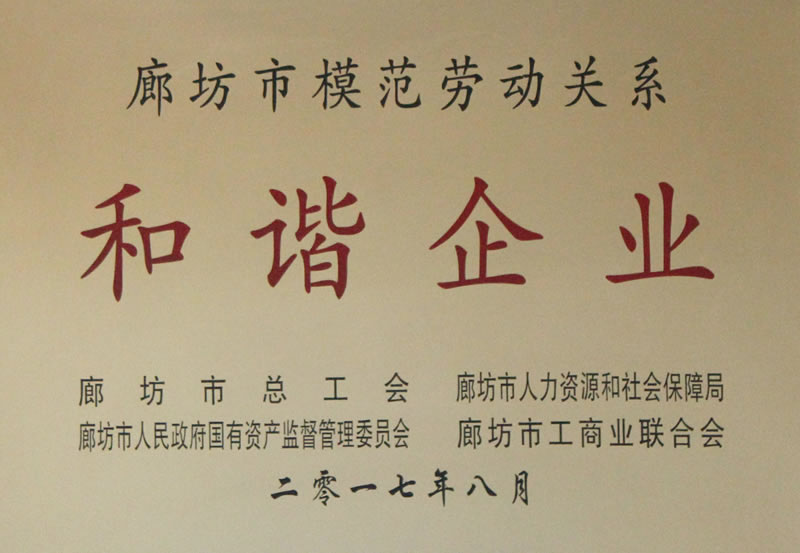 廊坊市模范劳动关系
和谐企业
廊坊市总工会 廊坊市人力资源和社会保障局
廊坊市人民政府国有资产监督管理委员会 廊坊市工商业联合会
二零一七年八月